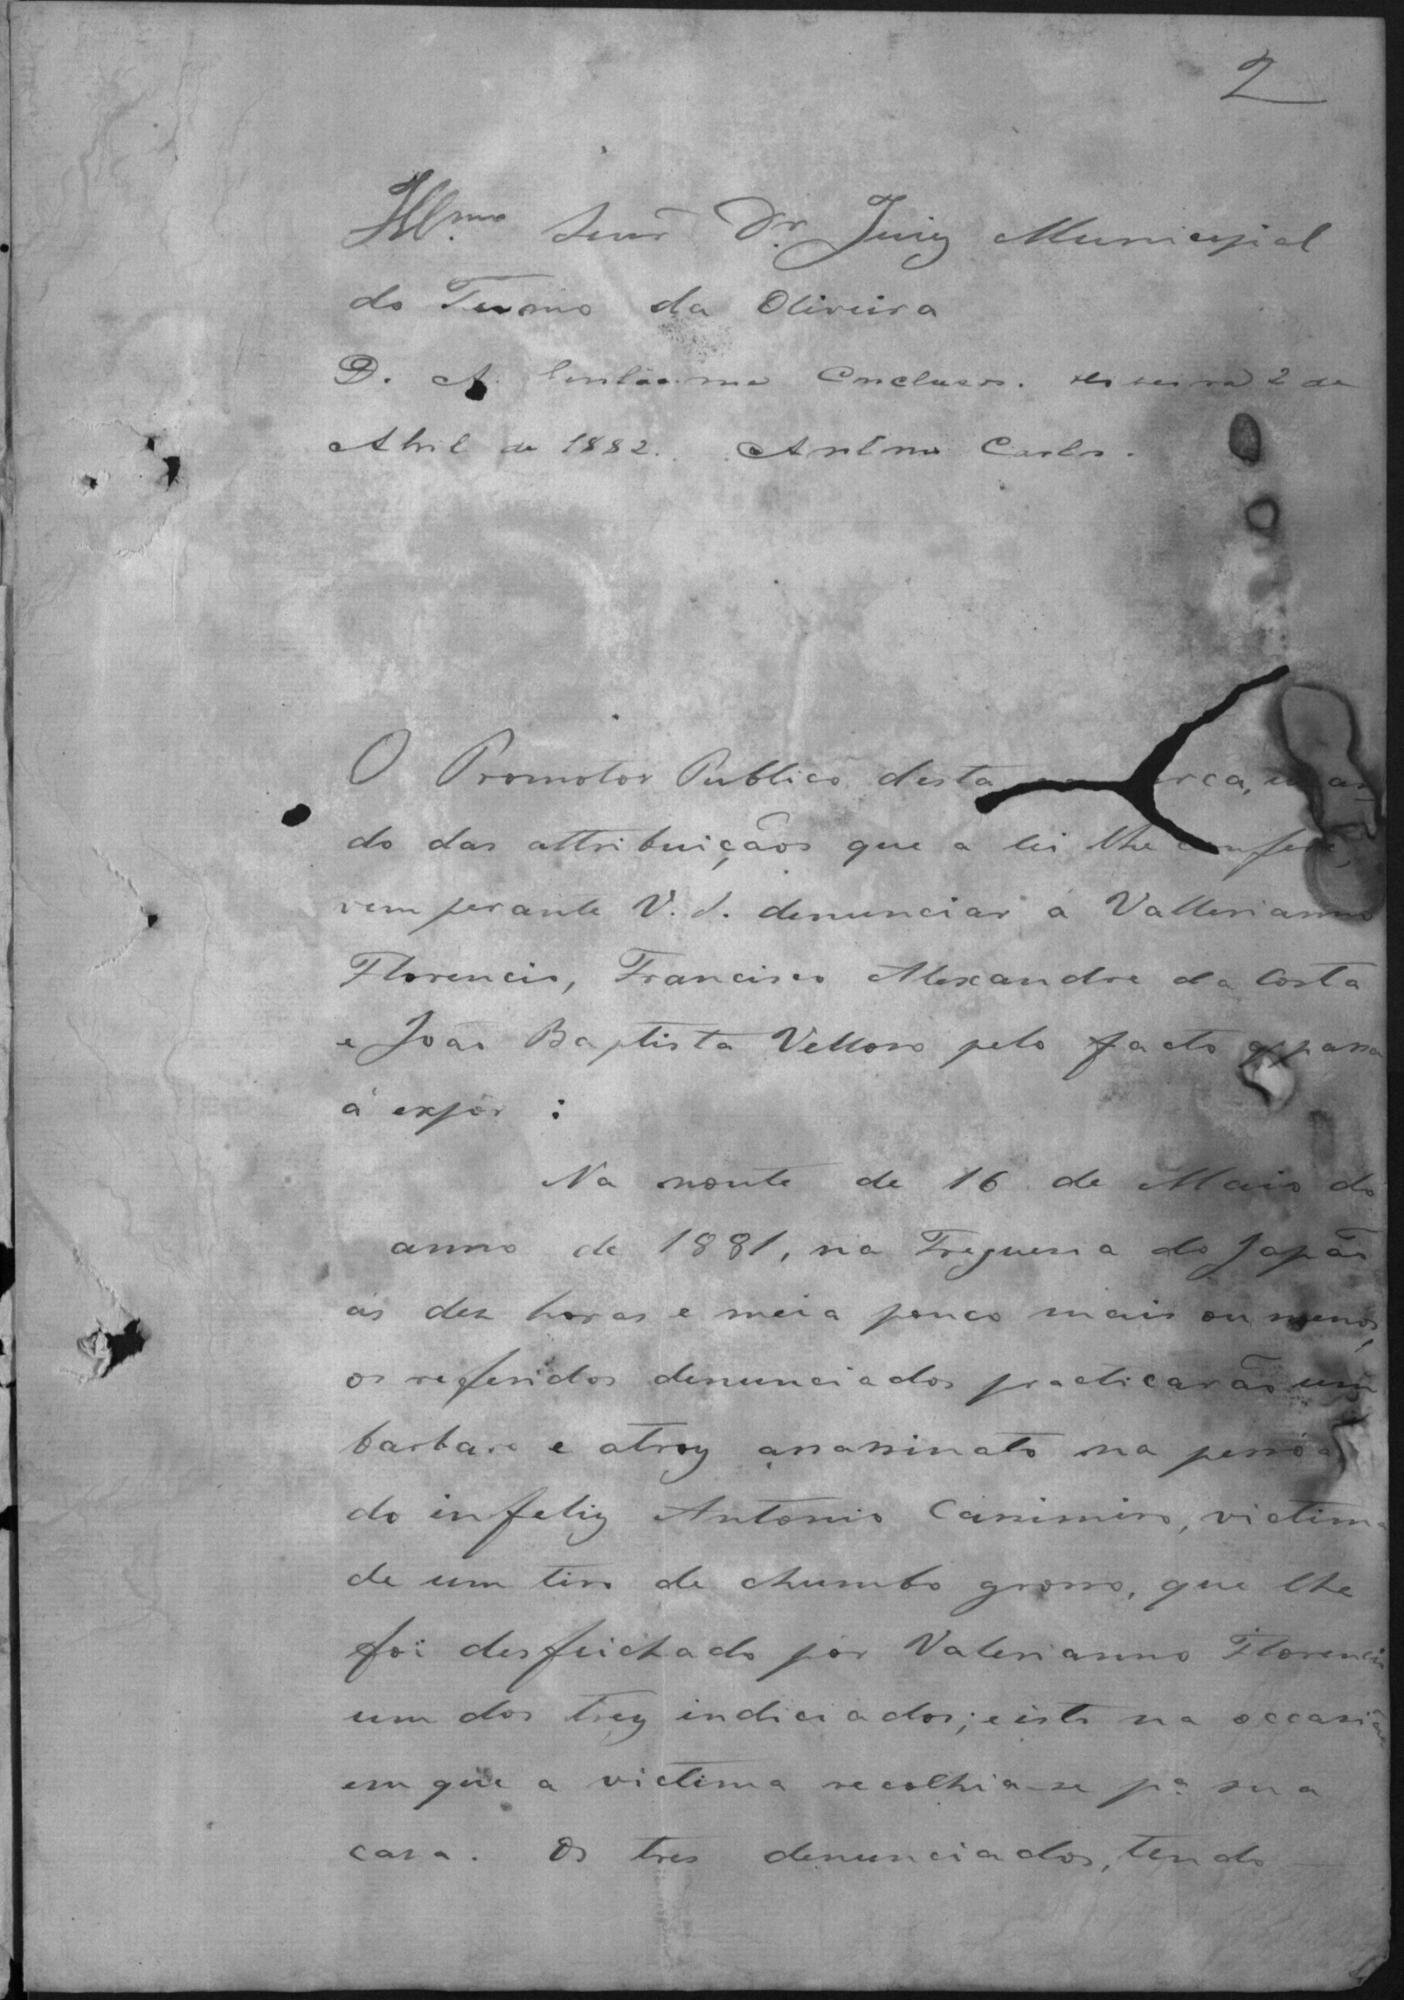 2
Ill.mo Senr Dr. Juiz Municipal
do Termo da Oliveira
D. A. Conclusos. Oliveira 2 de
Abril de 1882. Antonio Carlos.
O Promotor Publico desta comarca, usan
do das attribuiçãos que a lei lhe confere,
vem perante V. S. denunciar á Vallerianno
Florencio, Francisco Alexandre da Costa
e João Baptista Velloso pelo facto q passa
á expôr :
Na noute de 16 de Maio do
anno de 1881, na Freguesia do Japão
ás dez horas e meia pouco mais ou menos,
os referidos denunciados practicarão um
barbaro e atroz assassinato na pessôa
do infeliz Antonio Casimiro, victima
de um tiro de chumbo grosso, que lhe
foi desfeichado por Valerianno Florencio
um dos trez indiciados; e isto na occasião
em que a victima recolhia-se pª sua
casa. Os tres denunciados, tendo